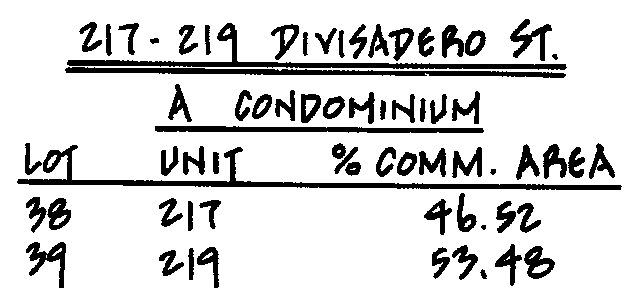 217-219 DIVISADERO ST.
A CONDOMINIUM
LOT UNIT % COMM. AREA
38 217 46.52
39 219 53.48